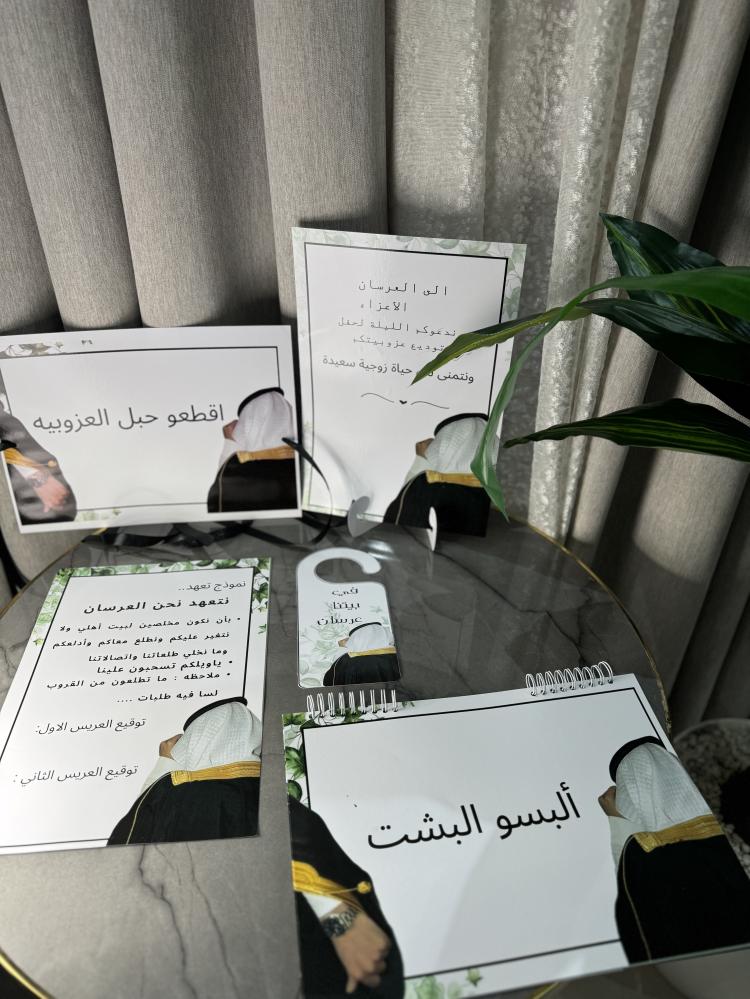 الى العرسان
الاعزاء
ندعوكم الليلة لحفل
توديع عزوبيتكم
ونتمنى حياة زوجية سعيدة
اقطعو حبل العزوبيه
نموذج تعهد..
نتعهد نحن العرسان
• بأن نكون مخلصين لبيت أهلي ولا
نتغير عليكم ونطلع معاكم وأدلعكم
وما نخلي طلعاتنا واتصالاتنا
• ياويلكم تسحبون علينا
• ملاحظه : ما تطلعون من القروب
لسا فيه طلبات ....
توقيع العريس الاول:
توقيع العريس الثاني :
في
بيتنا
عرسان
ألبسو البشت